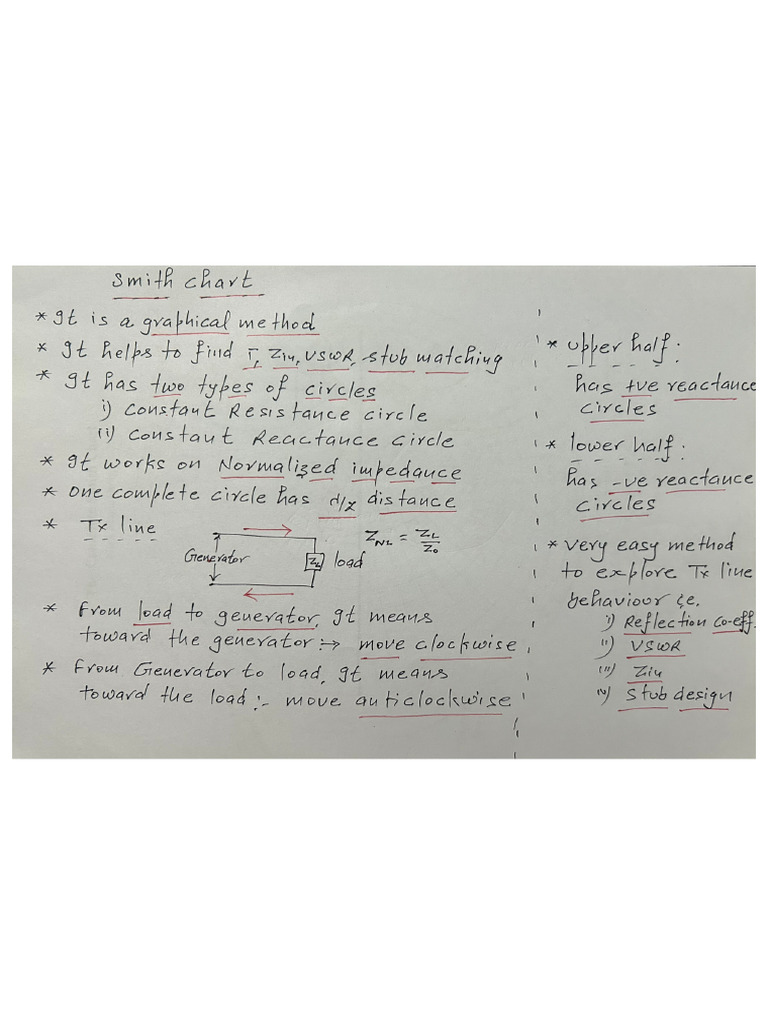 Smith chart
* It is a graphical method
* It helps to find Γ, Zin, VSWR, stub matching
* It has two types of circles
i) Constant Resistance circle
(ii) Constant Reactance Circle
* It works on Normalized impedance
* One complete circle has d/λ distance
* Tx line
Generator
ZL
load
ZNL = ZL/Z0
* From load to generator, It means
toward the generator :→ move clockwise
* From Generator to load, It means
toward the load :- move anticlockwise
* Upper half :
has +ve reactance
circles
* lower half :
has -ve reactance
circles
* Very easy method
to explore Tx line
behaviour i.e.
i) Reflection co-eff.
ii) VSWR
iii) Zin
iv) Stub design